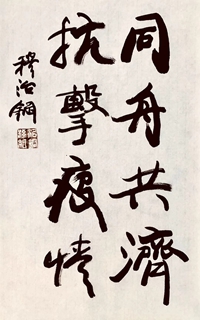 同舟共濟
抗擊疫情
穆治鋼